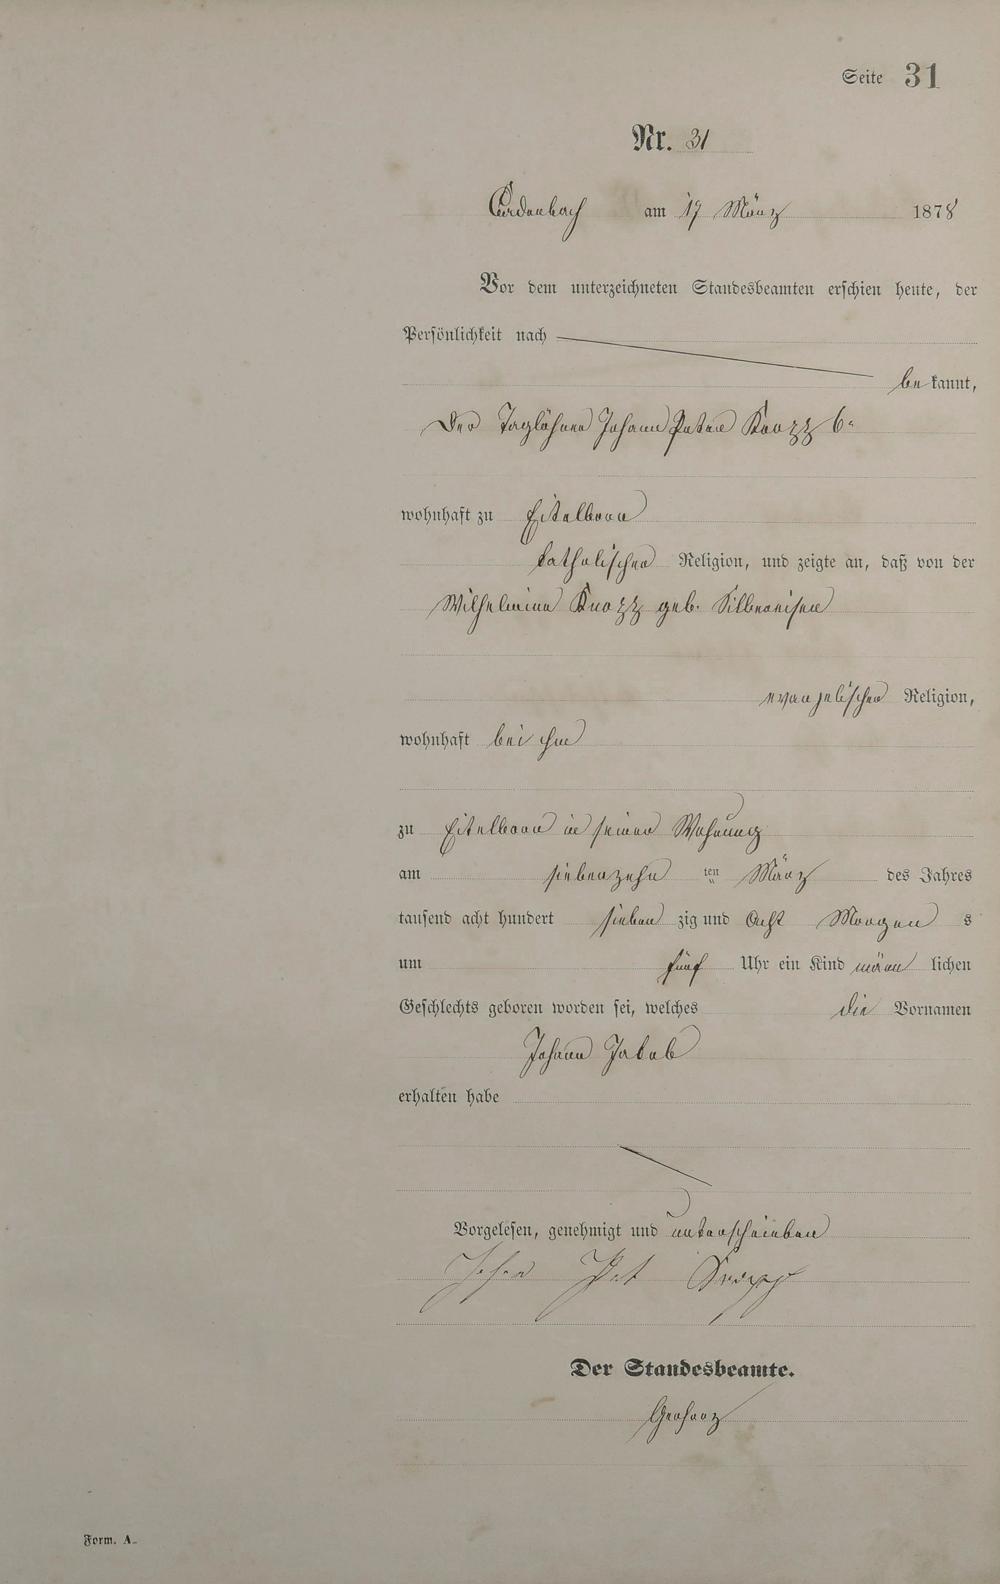 Seite 31
Nr. 31
Cadenbach am 17 März 1878
Vor dem unterzeichneten Standesbeamten erschien heute, der
Persönlichkeit nach
bekannt,
Der Taglöhner Johann Peter Knopp
wohnhaft zu Eitelborn
katholischer Religion, und zeigte an, daß von der
Wilhelmina Knopp geb. Silbereisen
evangelischer Religion,
wohnhaft bei ihm
zu Eitelborn in seiner Wohnung
am siebenzehn ten März des Jahres
tausend acht hundert sieben zig und Acht Morgen s
um fünf Uhr ein Kind männlichen
Geschlechts geboren worden sei, welches die Vornamen
Johann Jakob
erhalten habe
Vorgelesen, genehmigt und unterschrieben
Johan Pet Knopp
Der Standesbeamte.
Gerharz
Form. A.